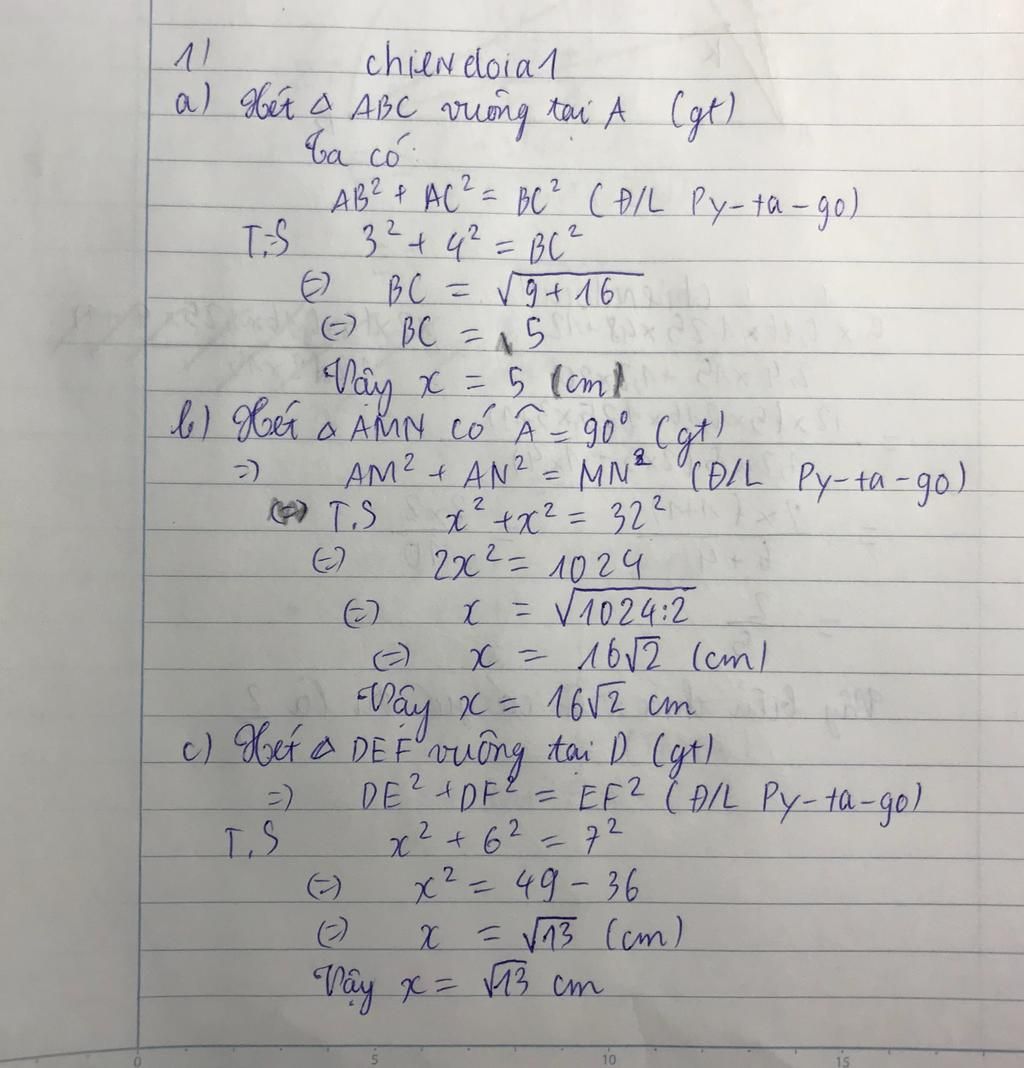 1/ chiendoia1
a) Xét Δ ABC vuông tại A (gt)
Ta có:
AB² + AC² = BC² (Đ/L Py-ta-go)
T.S 3² + 4² = BC²
(=) BC = √9+16
(=) BC = 5
Vậy x = 5 (cm)
b) Xét Δ AMN có Â = 90° (gt)
=) AM² + AN² = MN² (Đ/L Py-ta-go)
(=) T.S x² + x² = 32²
(=) 2x² = 1024
(=) x = √1024:2
(=) x = 16√2 (cm)
Vậy x = 16√2 cm
c) Xét Δ DEF vuông tại D (gt)
=) DE² + DF² = EF² (Đ/L Py-ta-go)
T.S x² + 6² = 7²
(=) x² = 49 - 36
(=) x = √13 (cm)
Vậy x = √13 cm
0 5 10 15